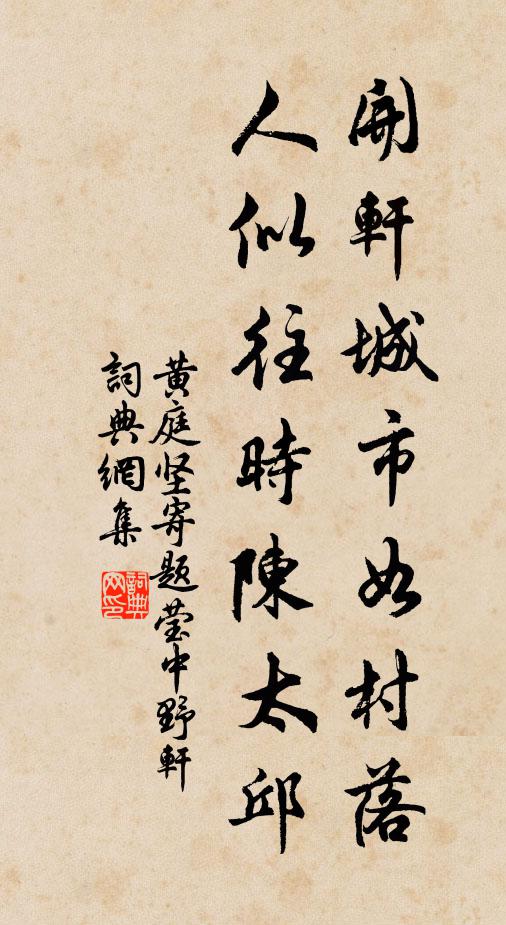 開軒城市如村落
人似往時陳太邱
黃庭坚寄题莹中野軒
詞典網集
詞典网印